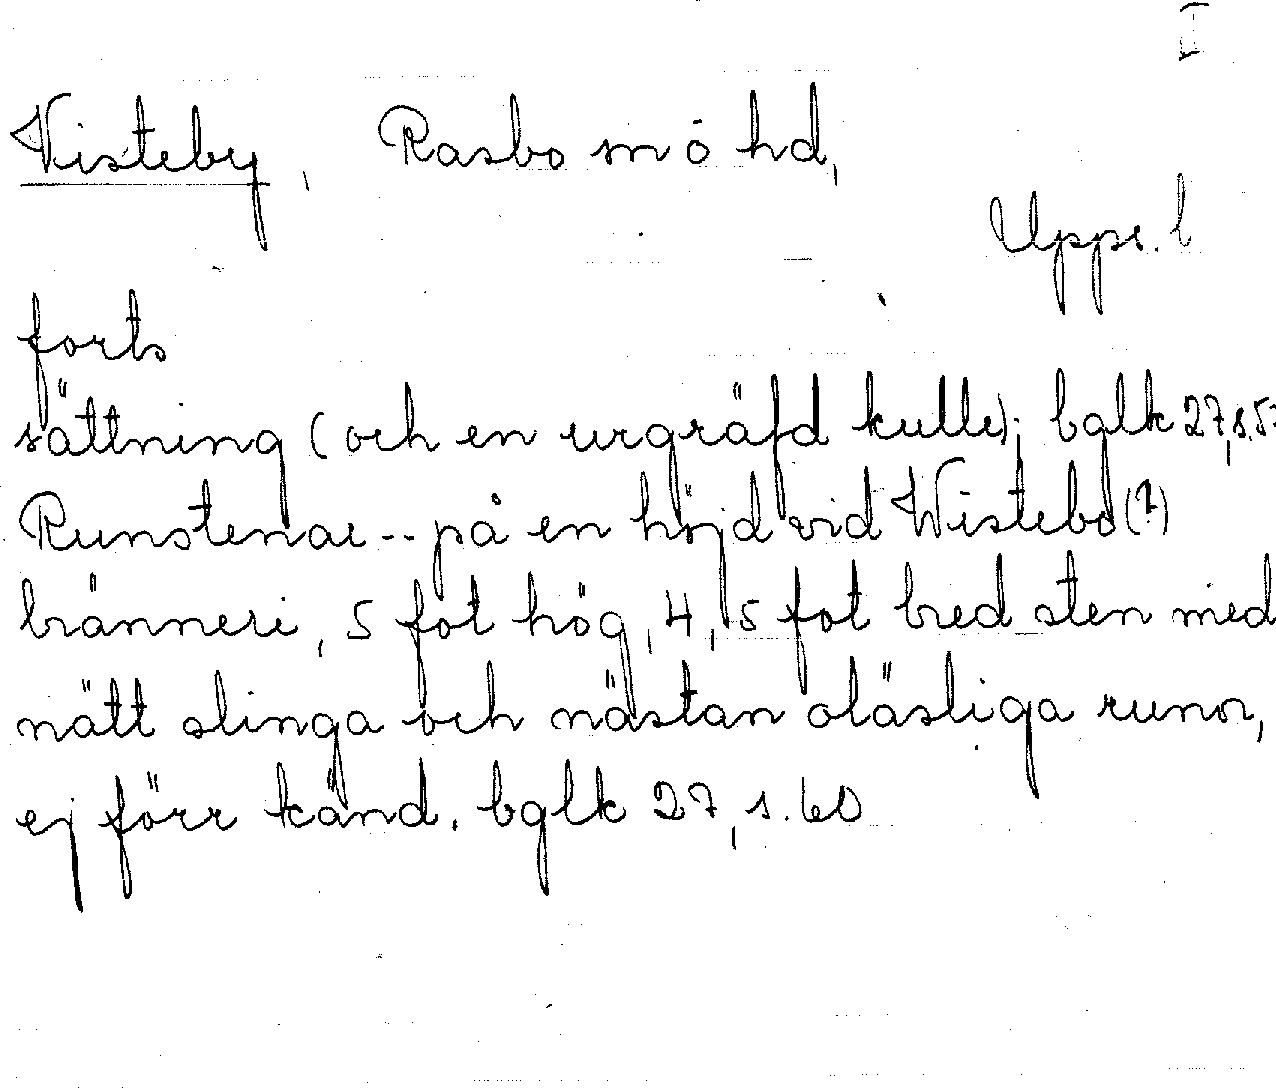 I
Visteby, Rasbo sn o hd,
Upps. l
forts
sättning (och en urgräfd kulle); bglk 27, s. 5
Runstenar -- på en höjd vid Wistebo (?)
bränneri, 5 fot hög, 4,5 fot bred sten med
nätt slinga och nästan olästliga runor,
ej förr känd. bglk 27, s. 60